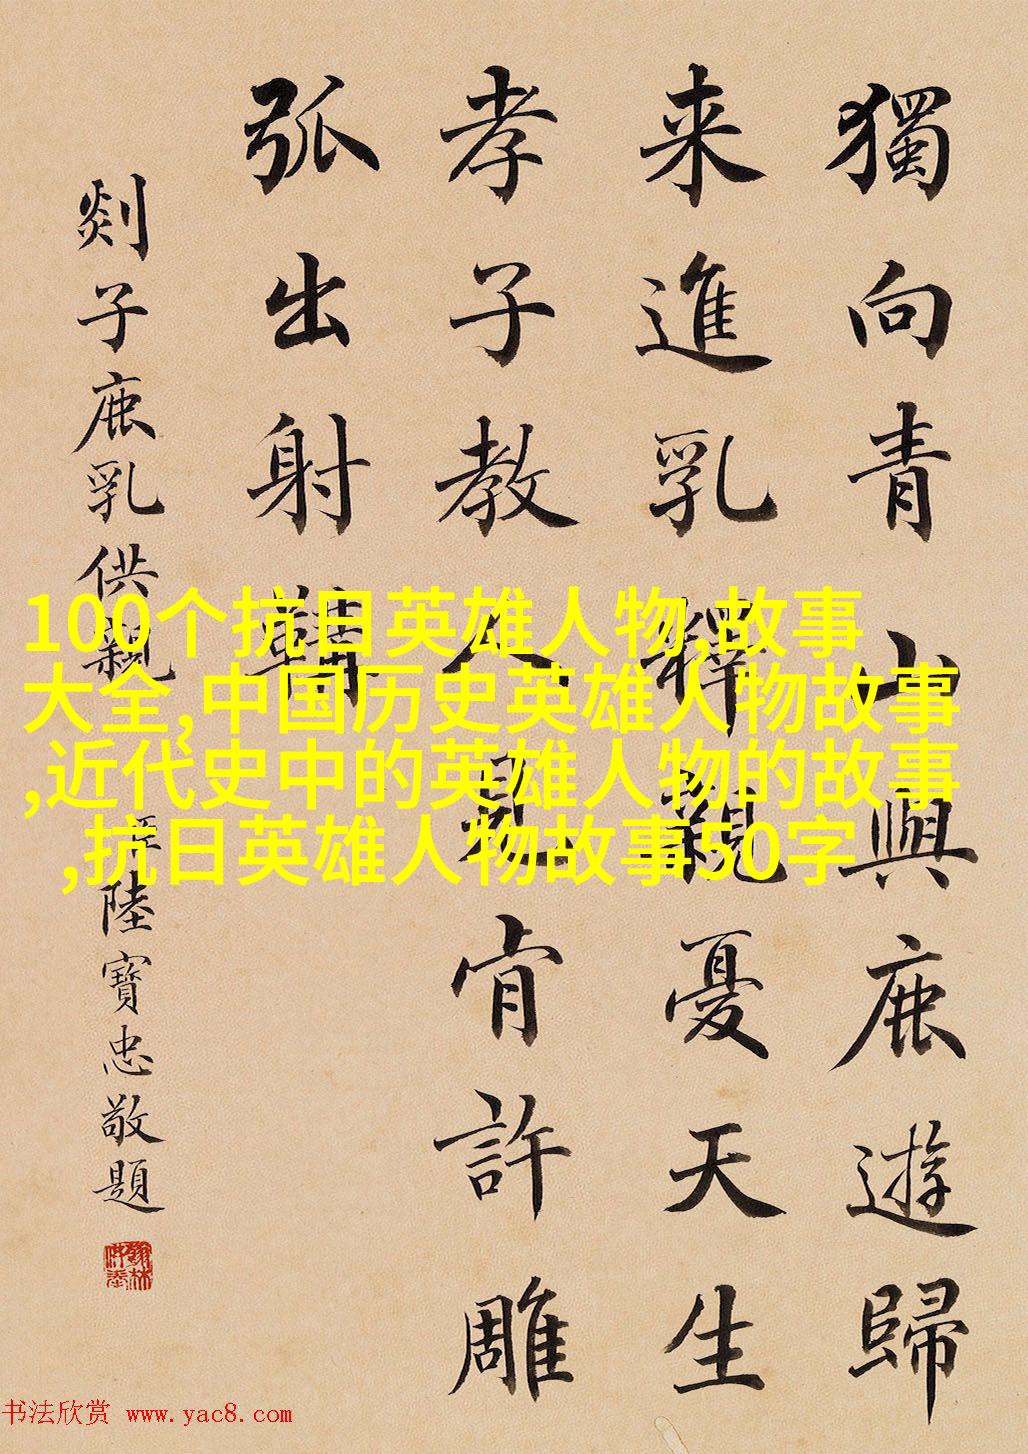 獨向青山與鹿遊歸
来進乳釋親憂天生
孝子教人見肯許雕
弧出射鞲
剡子鹿乳供親
臣陸寶忠敬題
100个抗日英雄人物,故事
大全,中国历史英雄人物故事
,近代史中的英雄人物的故事
,抗日英雄人物故事50字
书法欣赏 www.yac8.com